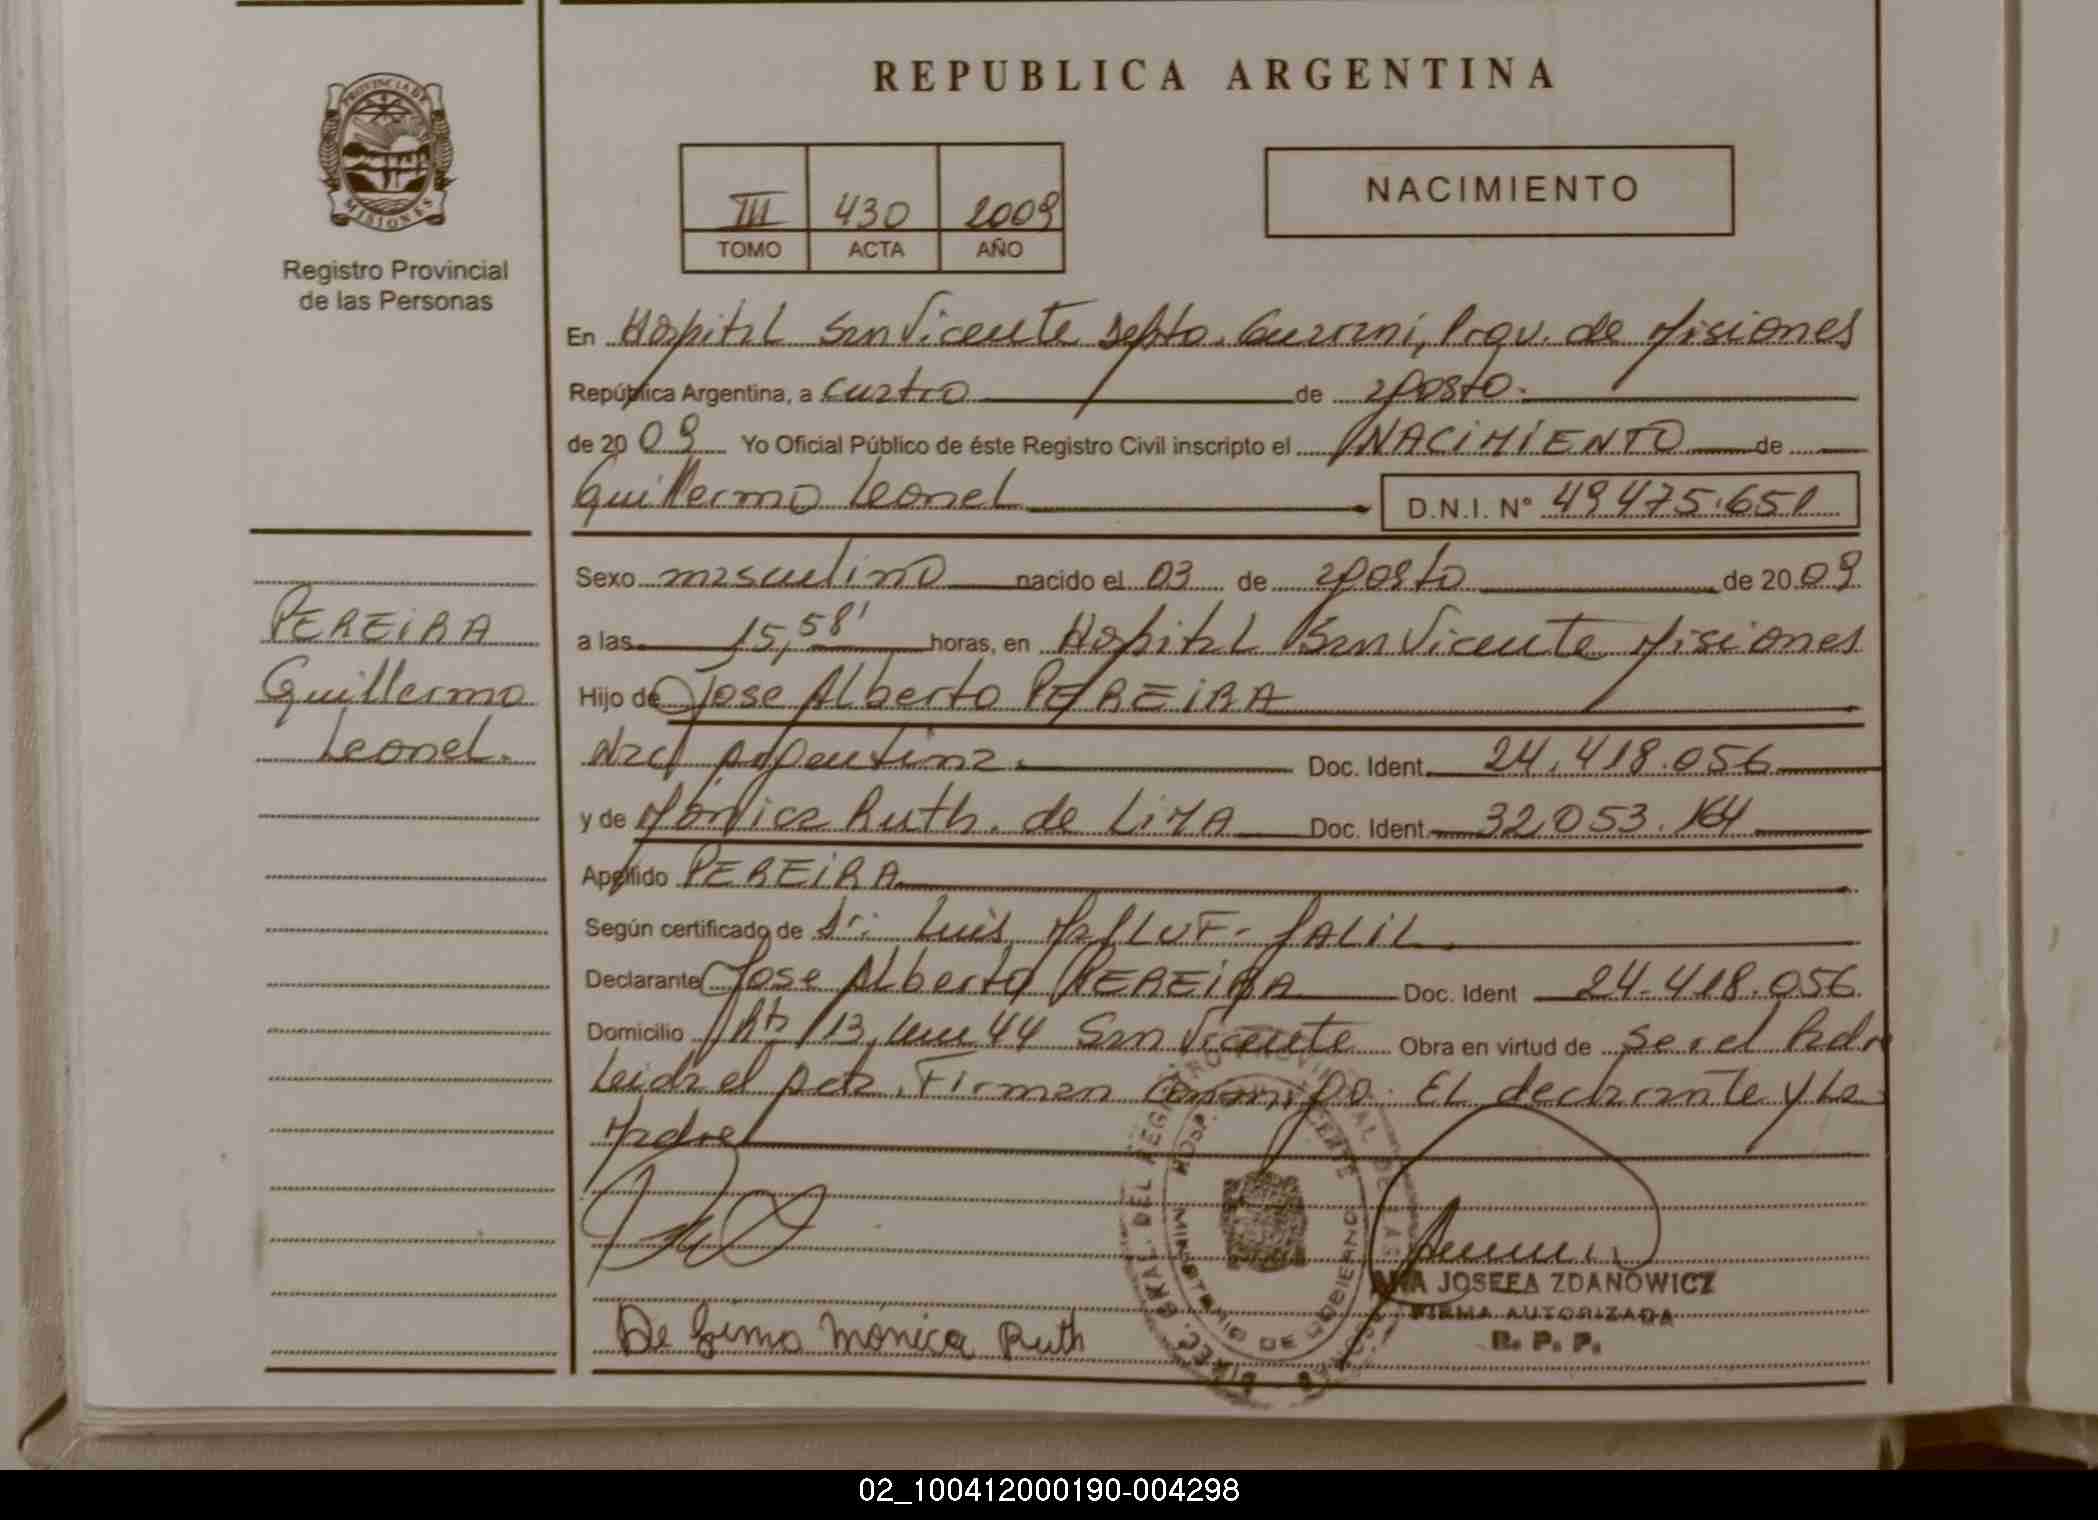 REPUBLICA ARGENTINA
PROVINCIA DE
MISIONES
Registro Provincial
de las Personas
III 430 2009
TOMO ACTA AÑO
NACIMIENTO
En Hospital San Vicente Depto. Guarani, Prov. de Misiones
República Argentina, a cuatro de agosto.
de 2009 Yo Oficial Público de éste Registro Civil inscripto el NACIMIENTO de
Guillermo Leonel D.N.I. Nº 49475.651
Sexo masculino nacido el 03 de agosto de 2009
a las 15,58' horas, en Hospital San Vicente Misiones
Hijo de Jose Alberto PEREIRA
Nac. Argentina. Doc. Ident. 24.418.056
y de Mónica Ruth. de LiMA Doc. Ident. 32.053.164
Apellido PEREIRA
Según certificado de Dr: Luis JALiL
Declarante Jose Alberto PEREIRA Doc. Ident 24.418.056
Domicilio Rta 13, km 44 San Vicente Obra en virtud de ser el Padre
Leida el Acta. Firman Conmigo. EL declarante y La
Madre
PEREIRA
Guillermo
Leonel.
De Lima Monica Ruth
DIREC. GRAL. DEL REGISTRO PROVINCIAL DE LAS PERSONAS
HOSP. SAN VICENTE
MINISTERIO DE GOBIERNO
ANA JOSEFA ZDANOWICZ
FIRMA AUTORIZADA
R. P. P.
02_100412000190-004298